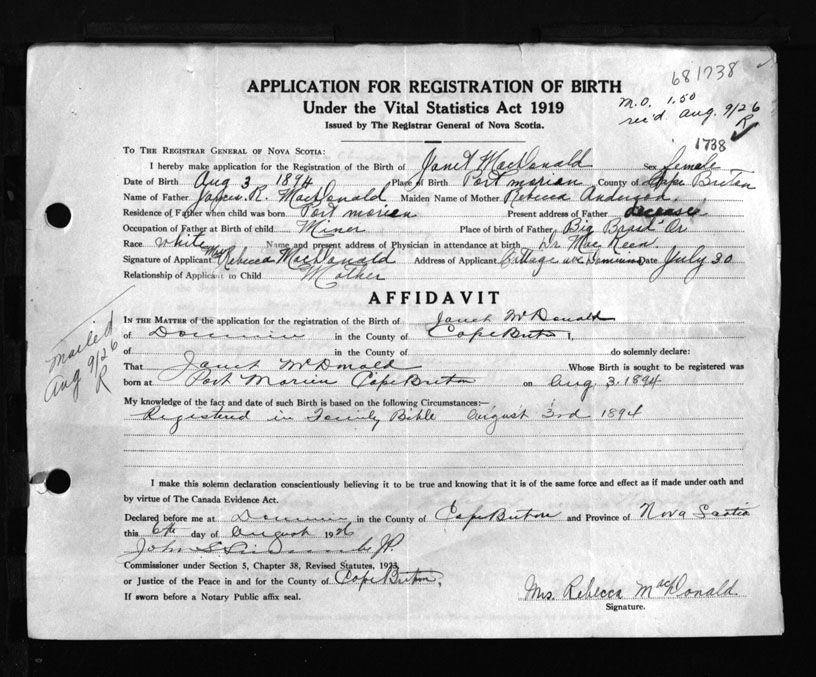 681738
APPLICATION FOR REGISTRATION OF BIRTH
Under the Vital Statistics Act 1919
Issued by The Registrar General of Nova Scotia.
M.O. 1.50
rec'd Aug. 9/26
R
1738
TO THE REGISTRAR GENERAL OF NOVA SCOTIA:
I hereby make application for the Registration of the Birth of Janet MacDonald Sex female
Date of Birth Aug 3 1894 Place of Birth Port morian County of Cape Breton
Name of Father James. R. MacDonald Maiden Name of Mother Rebecca Anderson
Residence of Father when child was born Port morien Present address of Father
Occupation of Father at Birth of child Miner Place of birth of Father Big Bras d' Or
Race white Name and present address of Physician in attendance at birth Dr. MacKeen
Signature of Applicant Mrs Rebecca MacDonald Address of Applicant Dominion Date July 30
Relationship of Applicant to Child Mother
AFFIDAVIT
IN THE MATTER of the application for the registration of the Birth of Janet McDonald
of Dominion in the County of Cape Breton I,
of in the County of do solemnly declare:
That Janet McDonald Whose Birth is sought to be registered was
born at Port Morien Cape Breton on Aug 3. 1894
My knowledge of the fact and date of such Birth is based on the following Circumstances:—
Registered in Family Bible August 3rd 1894
mailed
Aug 9/26
R
I make this solemn declaration conscientiously believing it to be true and knowing that it is of the same force and effect as if made under oath and
by virtue of The Canada Evidence Act.
Declared before me at Dominion in the County of Cape Breton and Province of Nova Scotia
this 6th day of August 1926
John S J.P.
Commissioner under Section 5, Chapter 38, Revised Statutes, 1923,
or Justice of the Peace in and for the County of Cape Breton,
If sworn before a Notary Public affix seal.
Mrs. Rebecca MacDonald.
Signature.